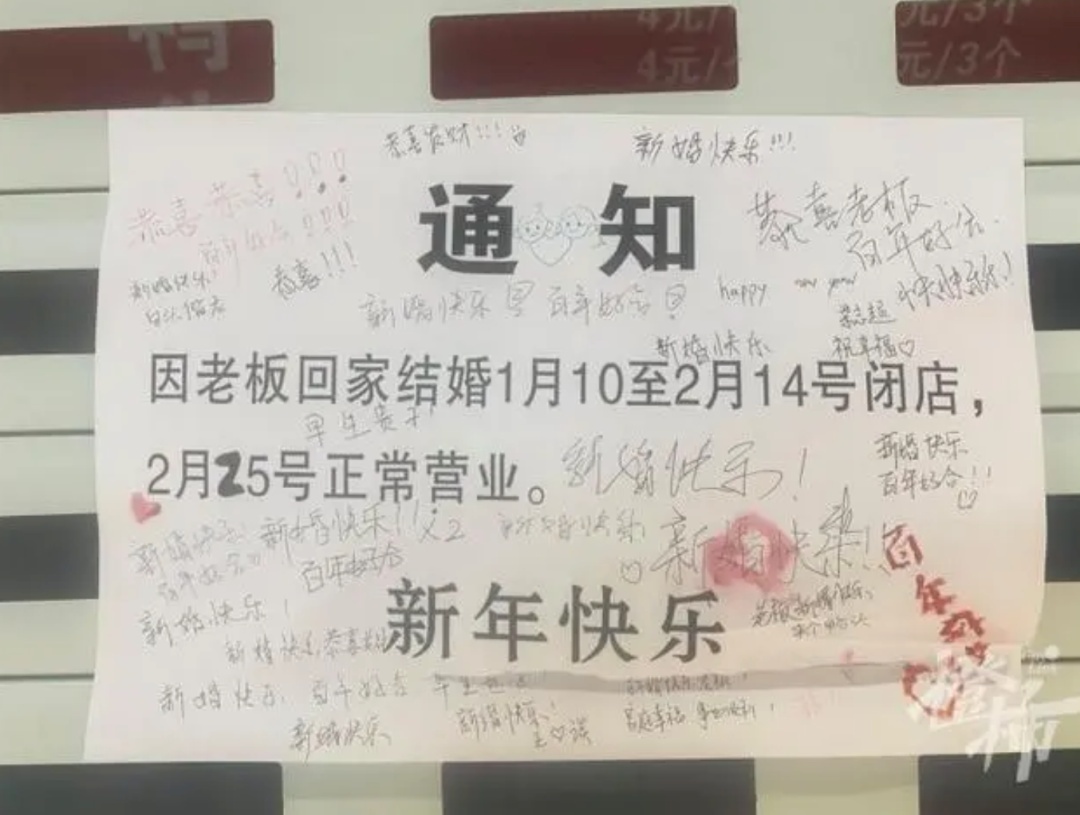 4元/
4元/
元/3个
元/3个
恭喜发财!!!
新婚快乐!!!
恭喜恭喜!!!
百年好合!!!
恭喜老板
百年好合
通知
恭喜!!!
新婚快乐
白头偕老
新婚快乐 百年好合
happy new year
新婚快乐
祝幸福♡
因老板回家结婚1月10至2月14号闭店，
早生贵子
2月25号正常营业。
新婚快乐!
新婚快乐
百年好合!!
新婚快乐
百年好合
新婚快乐!!x2
百年好合
新婚快乐
♡新婚快乐!!
百年好合
新婚快乐!
新年快乐
新婚快乐 恭喜
新婚快乐 百年好合
新婚快乐
新婚快乐!
橙柿